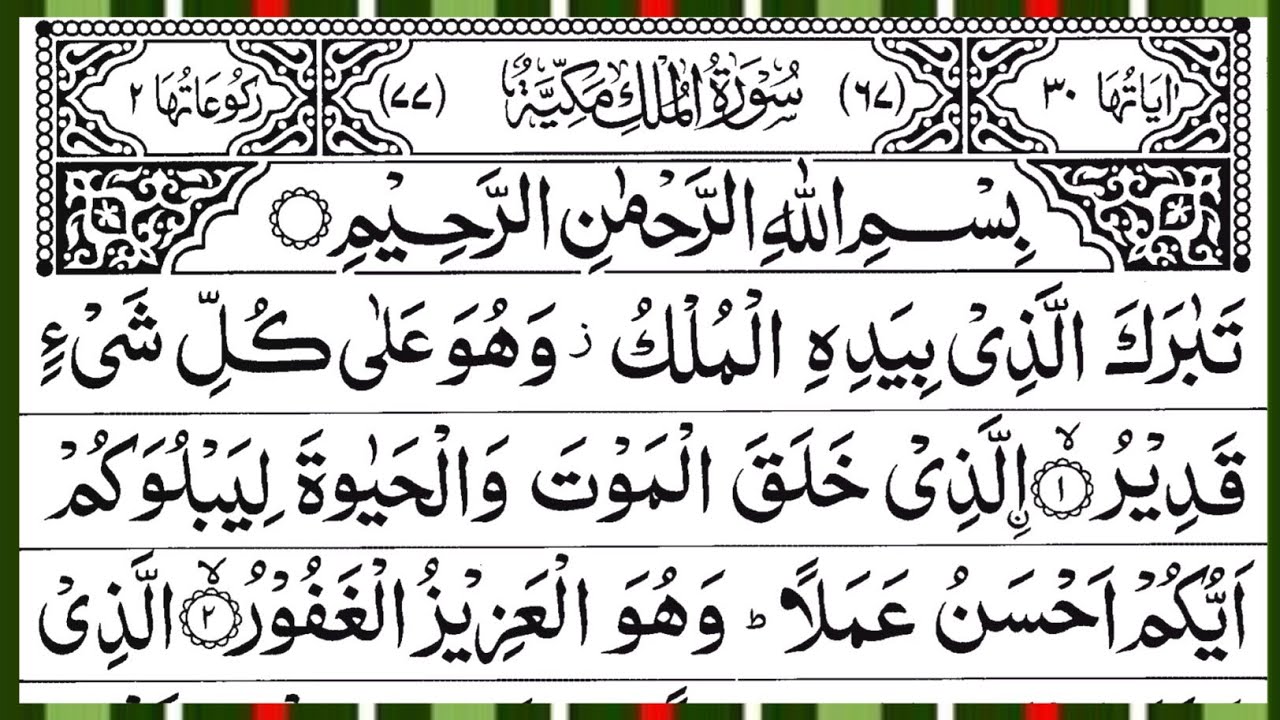 اٰيَاتُهَا ٣٠ (٦٧) سُوْرَةُ الْمُلْكِ مَكِّيَّةٌ (٧٧) رُكُوْعَاتُهَا ٢
بِسْمِ اللّٰهِ الرَّحْمٰنِ الرَّحِيْمِ
تَبٰرَكَ الَّذِىْ بِيَدِهِ الْمُلْكُ ز وَهُوَ عَلٰى كُلِّ شَىْءٍ
قَدِيْرُ ۙ ١ اۨلَّذِىْ خَلَقَ الْمَوْتَ وَالْحَيٰوةَ لِيَبْلُوَكُمْ
اَيُّكُمْ اَحْسَنُ عَمَلًا ؕ وَهُوَ الْعَزِيْزُ الْغَفُوْرُ ۙ ٢ الَّذِىْ